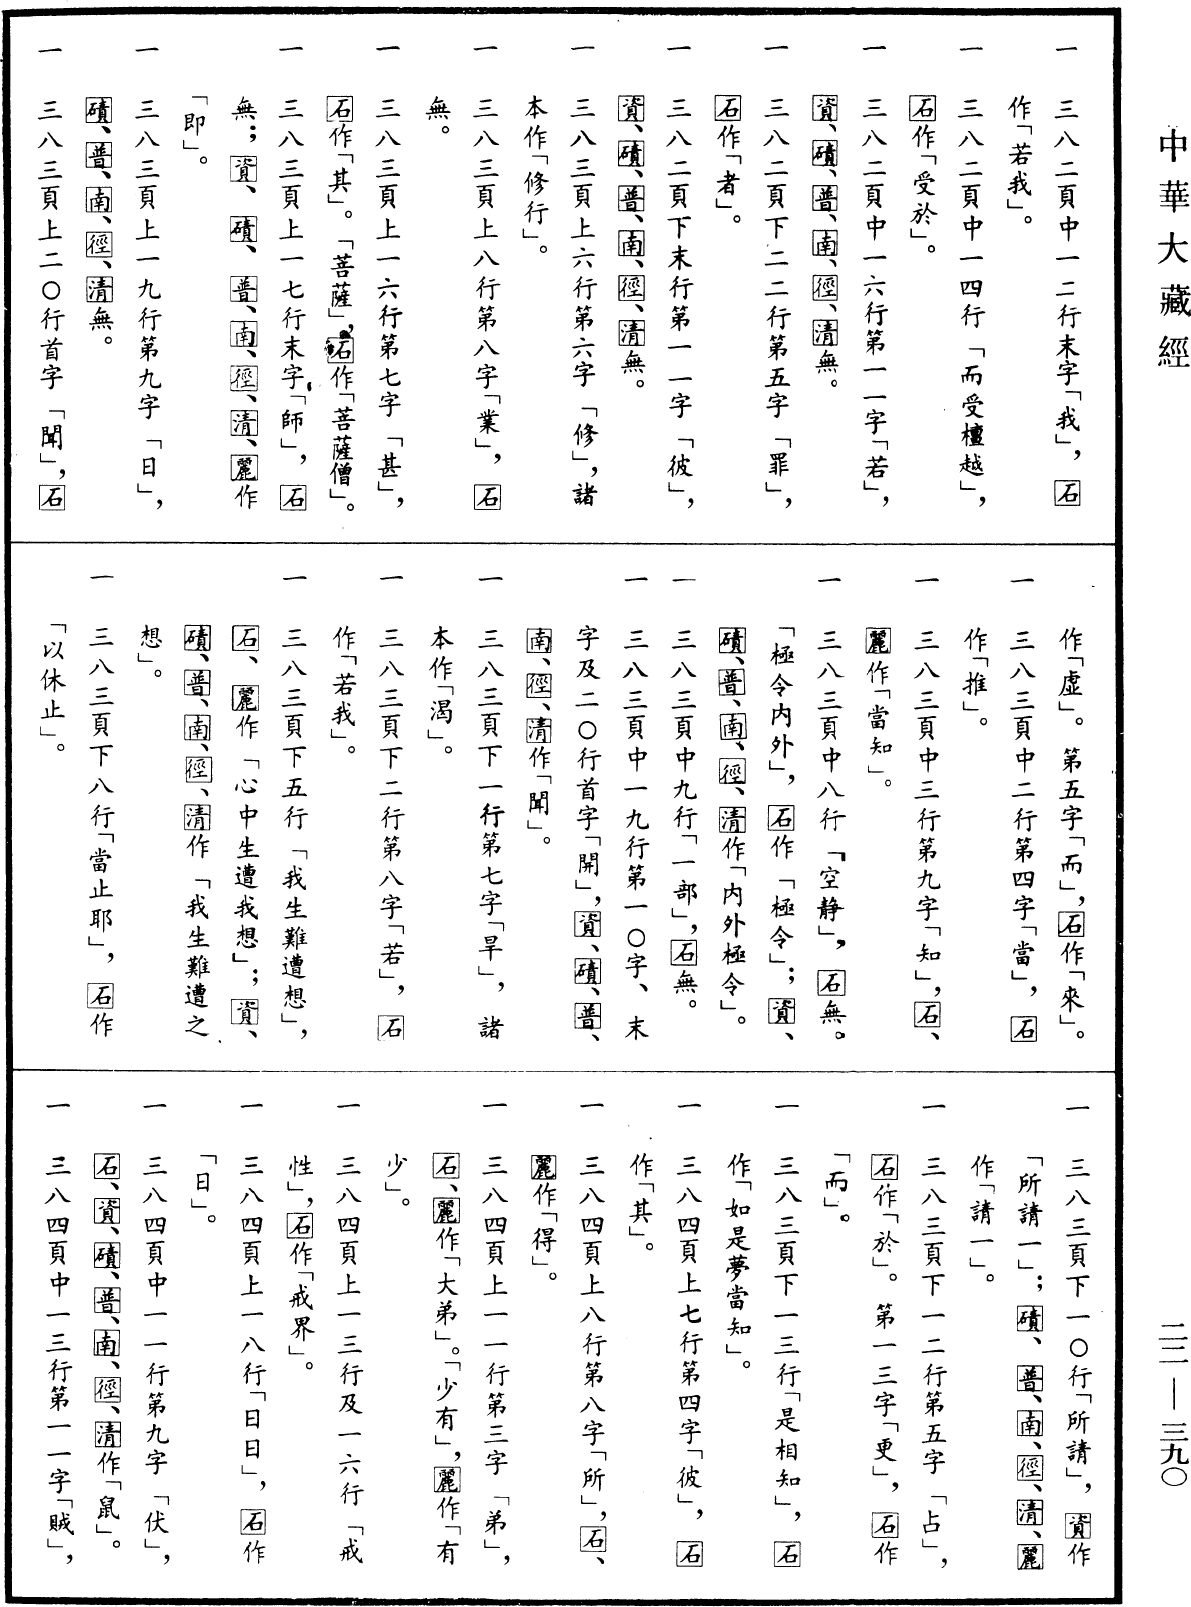 中華大藏經
一　三八二頁中一二行末字「我」，石
作「若我」。
一　三八二頁中一四行「而受檀越」，
石作「受於」。
一　三八二頁中一六行第一一字「若」，
資、磧、普、南、徑、清無。
一　三八二頁下二二行第五字「罪」，
石作「者」。
一　三八二頁下末行第一一字「彼」，
資、磧、普、南、徑、清無。
一　三八三頁上六行第六字「修」，諸
本作「修行」。
一　三八三頁上八行第八字「業」，石
無。
一　三八三頁上一六行第七字「甚」，
石作「其」。「菩薩」，石作「菩薩僧」。
一　三八三頁上一七行末字「師」，石
無；資、磧、普、南、徑、清、麗作
「即」。
一　三八三頁上一九行第九字「日」，
磧、普、南、徑、清無。
一　三八三頁上二〇行首字「聞」，石
作「虛」。第五字「而」，石作「來」。
一　三八三頁中二行第四字「當」，石
作「推」。
一　三八三頁中三行第九字「知」，石、
麗作「當知」。
一　三八三頁中八行「空静」，石無。
「極令內外」，石作「極令」；資、
磧、普、南、徑、清作「內外極令」。
一　三八三頁中九行「一部」，石無。
一　三八三頁中一九行第一〇字、末
字及二〇行首字「開」，資、磧、普、
南、徑、清作「聞」。
一　三八三頁下一行第七字「旱」，諸
本作「渴」。
一　三八三頁下二行第八字「若」，石
作「若我」。
一　三八三頁下五行「我生難遭想」，
石、麗作「心中生遭我想」；資、
磧、普、南、徑、清作「我生難遭之
想」。
一　三八三頁下八行「當止耶」，石作
「以休止」。
一　三八三頁下一〇行「所請」，資作
「所請一」；磧、普、南、徑、清、麗
作「請一」。
一　三八三頁下一二行第五字「占」，
石作「於」。第一三字「更」，石作
「而」。
一　三八三頁下一三行「是相知」，石
作「如是夢當知」。
一　三八四頁上七行第四字「彼」，石
作「其」。
一　三八四頁上八行第八字「所」，石、
麗作「得」。
一　三八四頁上一一行第三字「弟」，
石、麗作「大弟」。「少有」，麗作「有
少」。
一　三八四頁上一三行及一六行「戒
性」，石作「戒界」。
一　三八四頁上一八行「日日」，石作
「日」。
一　三八四頁中一一行第九字「伏」，
石、資、磧、普、南、徑、清作「鼠」。
一　三八四頁中一三行第一一字「賊」，
二二—三九〇